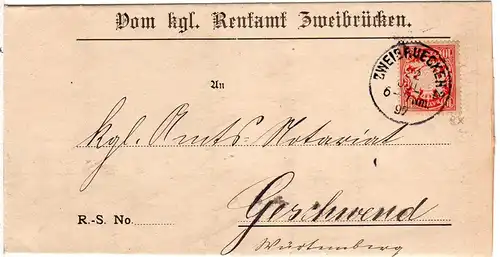 Vom kgl. Rentamt Zweibrücken.
ZWEIBRUECKEN
An
kgl. Amts-Notariat
Geschwend
R.-S. No.
Württemberg